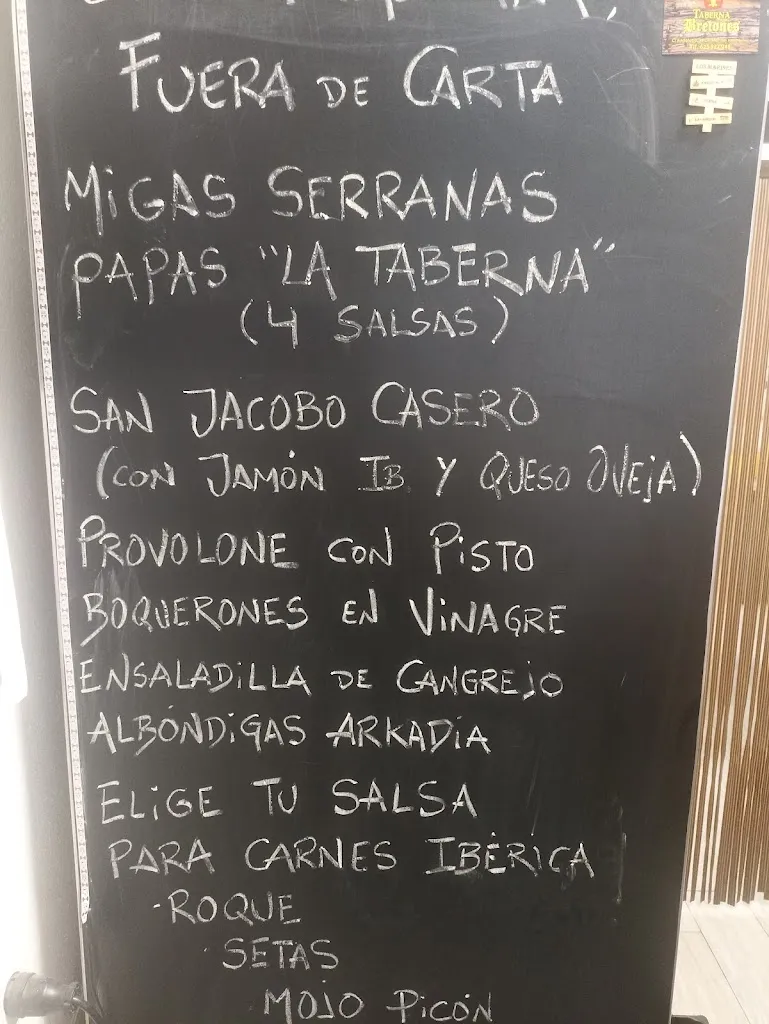 TABERNA
Bretones
FUERA DE CARTA
MiGAS SERRANAS
PAPAS "LA TABERNA"
(4 SALSAS)
SAN JACOBO CASERO
(CON JAMÓN IB Y QUESO OVEjA)
PROVOLONE CON PiSTO
BOQUERONES EN ViNAGRE
ENSALADiLLA DE CANGREjO
ALBÓNDiGAS ARKADiA
ELiGE TU SALSA
PARA CARNES IBÉRiCA
·ROQUE
·SETAS
MOJO PiCÓN